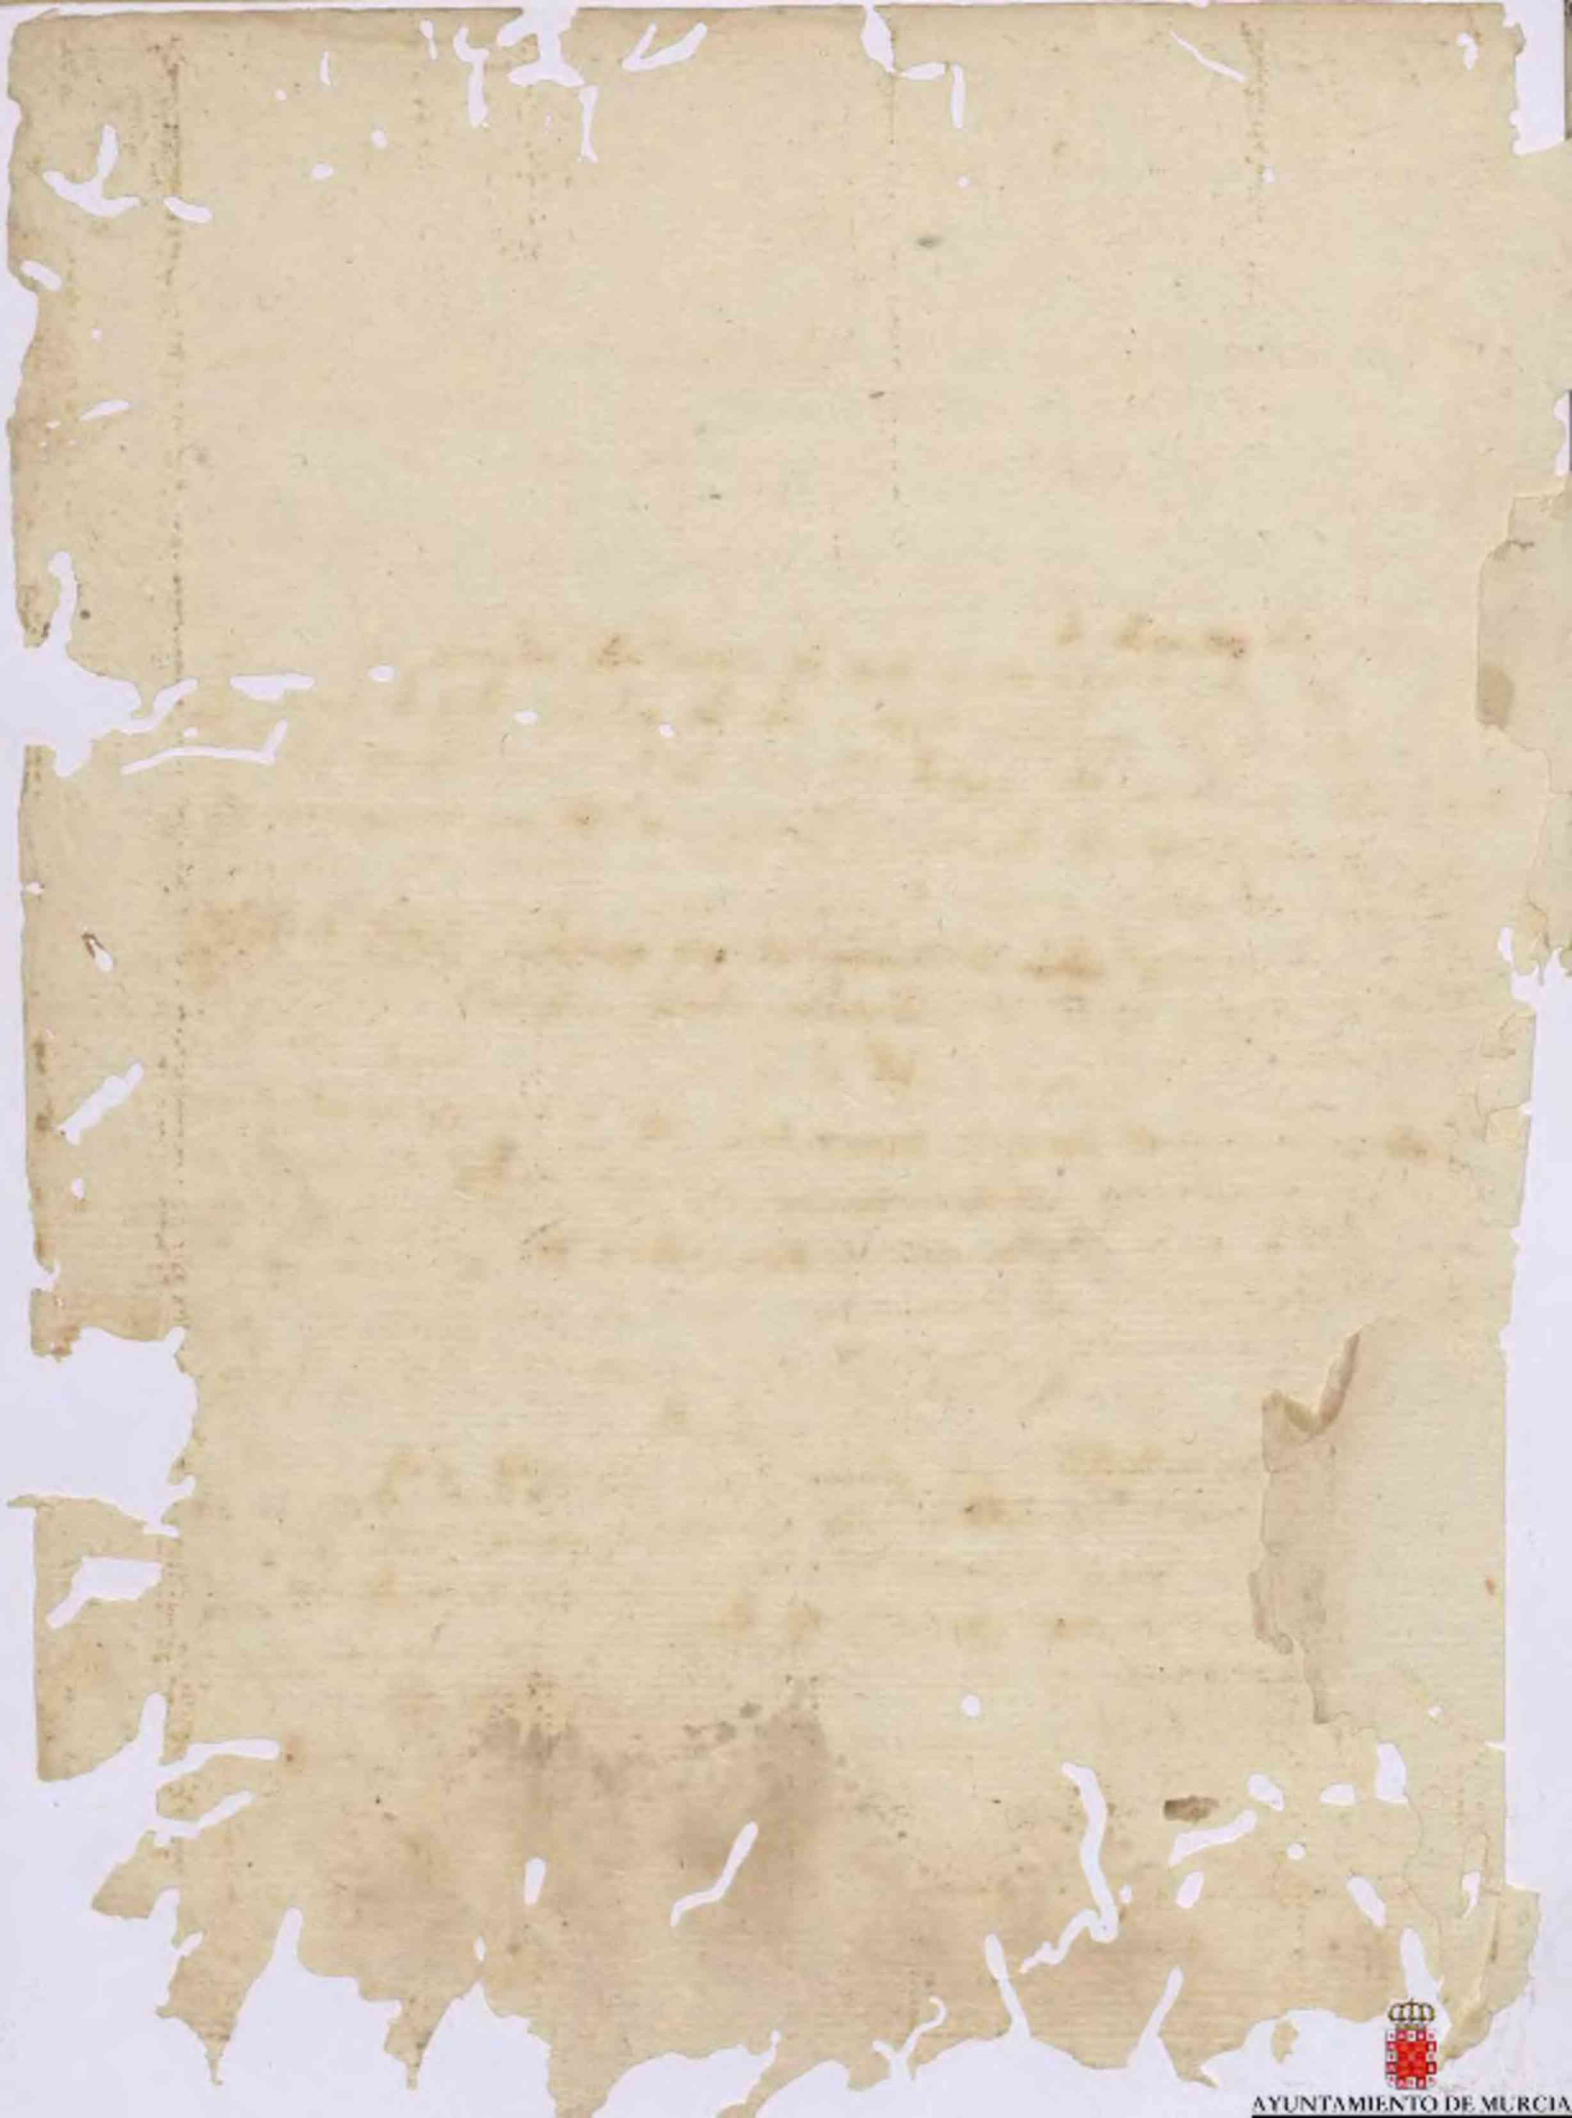 AYUNTAMIENTO DE MURCIA